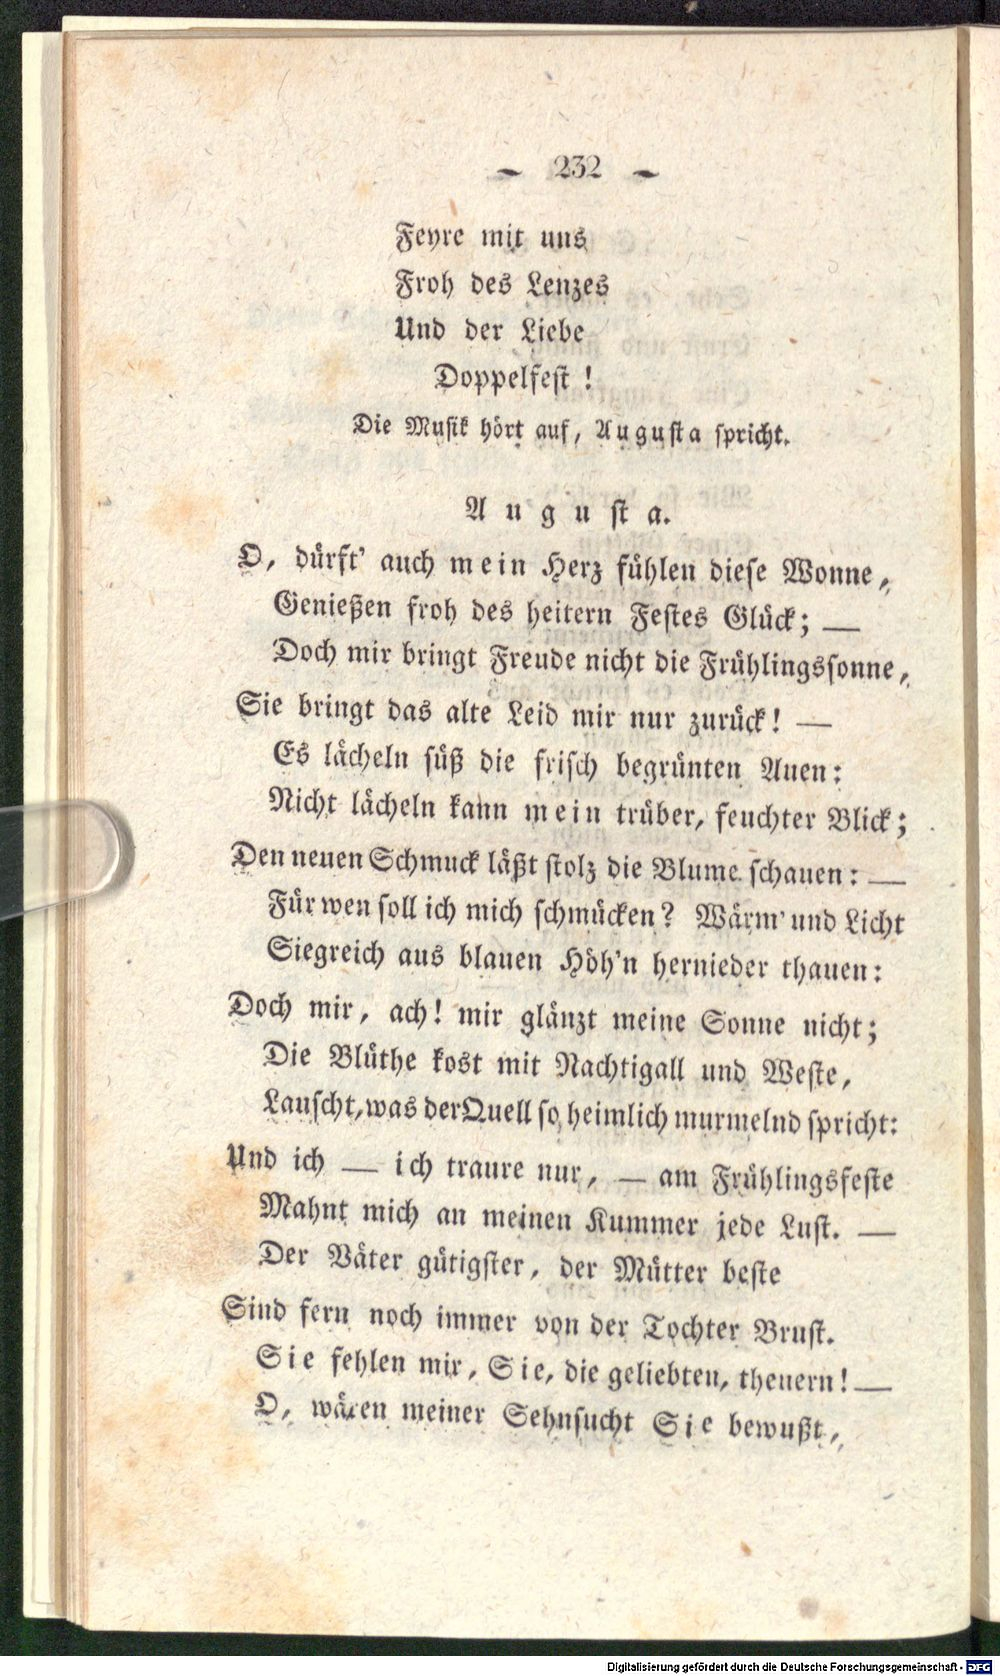 ~ 232 ~
Feyre mit uns
Froh des Lenzes
Und der Liebe
Doppelfest!
Die Musik hört auf, Augusta spricht.
Augusta.
O, dürft' auch mein Herz fühlen diese Wonne,
Genießen froh des heitern Festes Glück; —
Doch mir bringt Freude nicht die Frühlingssonne,
Sie bringt das alte Leid mir nur zurück! —
Es lächeln süß die frisch begrünten Auen:
Nicht lächeln kann mein trüber, feuchter Blick;
Den neuen Schmuck läßt stolz die Blume schauen: —
Für wen soll ich mich schmücken? Wärm' und Licht
Siegreich aus blauen Höh'n hernieder thauen:
Doch mir, ach! mir glänzt meine Sonne nicht;
Die Blüthe kost mit Nachtigall und Weste,
Lauscht, was der Quell so heimlich murmelnd spricht:
Und ich — ich traure nur, — am Frühlingsfeste
Mahnt mich an meinen Kummer jede Lust. —
Der Väter gütigster, der Mütter beste
Sind fern noch immer von der Tochter Brust.
Sie fehlen mir, Sie, die geliebten, theuern! —
O, wären meiner Sehnsucht Sie bewußt,
Digitalisierung gefördert durch die Deutsche Forschungsgemeinschaft - DFG